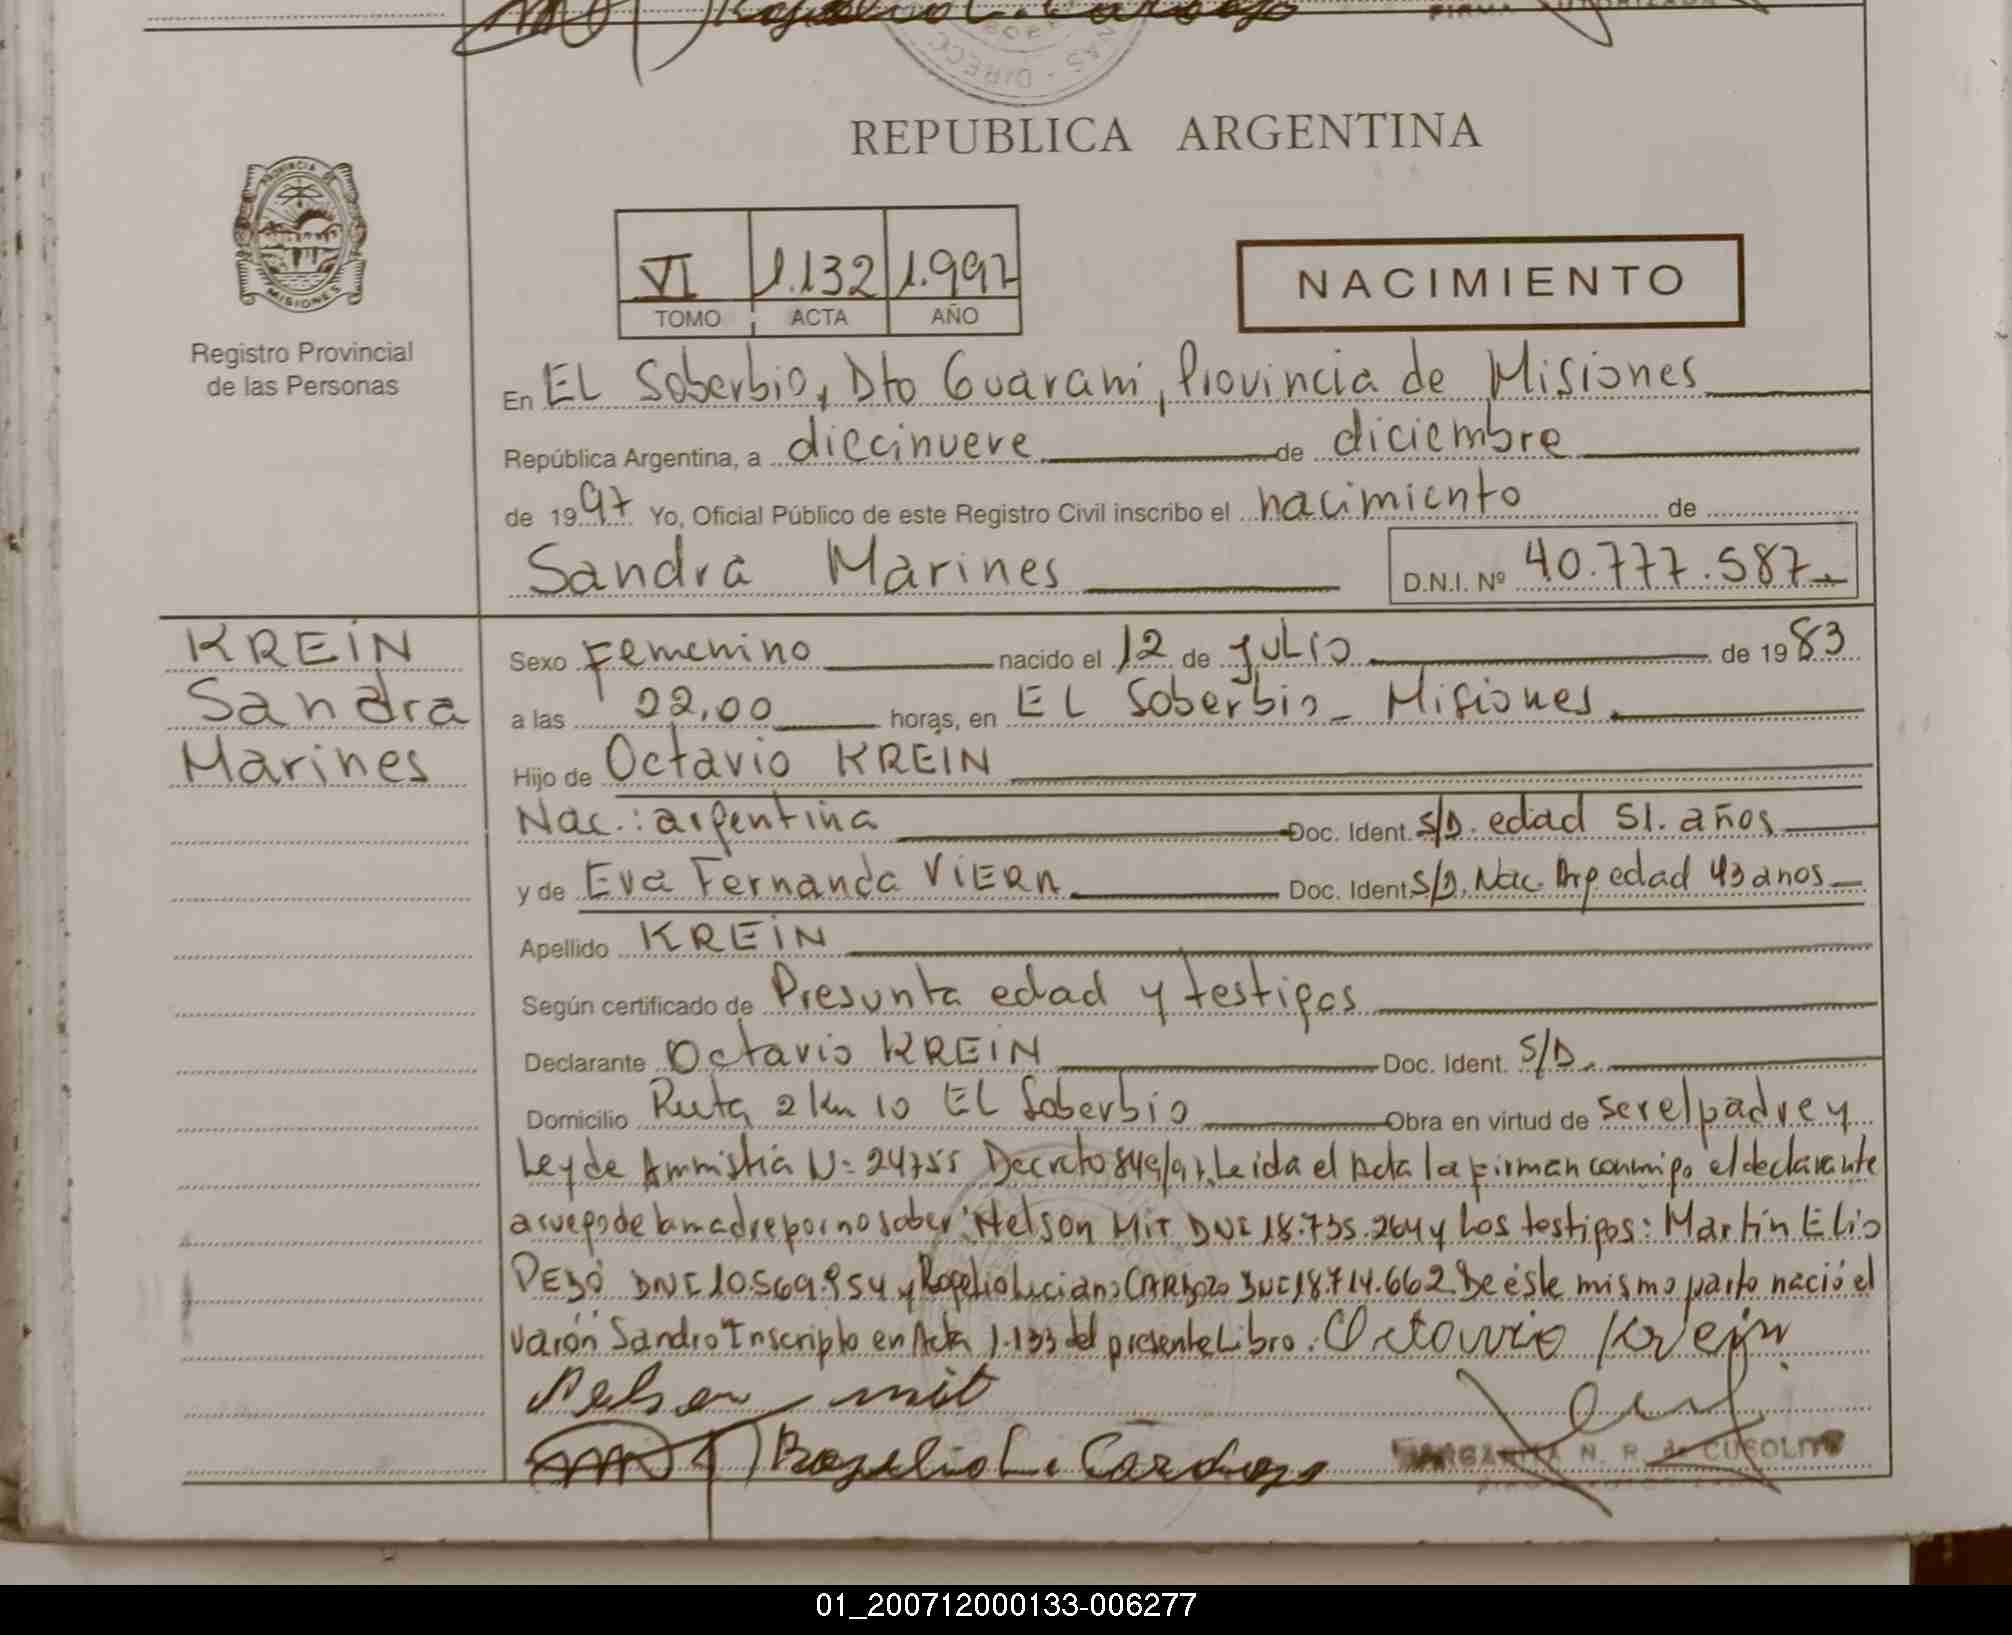 REPUBLICA ARGENTINA
PROVINCIA DE MISIONES
Registro Provincial
de las Personas
VI 1.132 1.997
TOMO ACTA AÑO
NACIMIENTO
En EL Soberbio, Dto Guarani, Provincia de Misiones
República Argentina, a diecinueve de diciembre
de 1997 Yo, Oficial Público de este Registro Civil inscribo el nacimiento de
Sandra Marines D.N.I. Nº 40.777.587.
KREIN
Sandra
Marines
Sexo Femenino nacido el 12 de julio de 1983
a las 22,00 horas, en EL Soberbio - Misiones
Hijo de Octavio KREIN
Nac.: argentina Doc. Ident. S/D. edad 51. años
y de Eva Fernanda VIERA Doc. Ident S/D. Nac. Arg edad 43 anos
Apellido KREIN
Según certificado de Presunta edad y testigos
Declarante Octavio KREIN Doc. Ident. S/D.
Domicilio Ruta 2 Km 10 EL Soberbio Obra en virtud de ser el padre y
Ley de Amnistia N= 24755 Decreto 849/97. Leida el Acta la firman conmigo el declarante
a ruego de la madre por no saber: Nelson MIT DNI 18.735.264 y Los testigos: Martín Elio
DNI 10.569.954 y Rogelio Luciano CARDOZO DNI 18.714.662 De éste mismo parto nació el
varón "Sandro" Inscripto en Acta 1.133 del presente Libro. Octavio Krein
Nelson mit
Rogelio L. Cardozo
MARGARITA N. R. de CUBOLITO
01_200712000133-006277